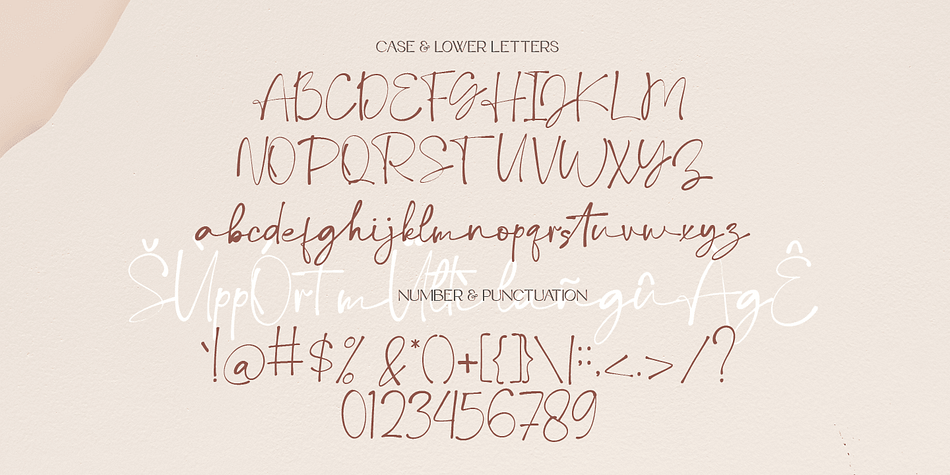 CASE & LOWER LETTERS
ABCDEFGHIJKLM
NOPQRSTUVWXYZ
abcdefghijklmnopqrstuvwxyz
ŠÙppÖrT mÜlti lañgû AgÊ
NUMBER & PUNCTUATION
`!@#$% &*()+[{]}\|:;,<.>/?
0123456789